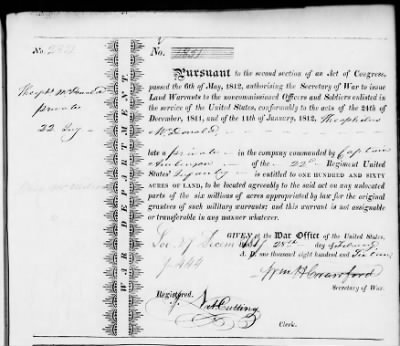 No. 2851
No. 2851
Theoph.s McDonald
private
22 Inf.y
WAR DEPARTMENT.
Pursuant to the second section of an Act of Congress,
passed the 6th of May, 1812, authorising the Secretary of War to issue
Land Warrants to the noncommissioned Officers and Soldiers enlisted in
the service of the United States, conformably to the acts of the 24th of
December, 1811, and of the 11th of January, 1812, Theophilus
McDonald
late a private in the company commanded by Captain
of the 22d Regiment United
States' Infantry is entitled to ONE HUNDRED AND SIXTY
ACRES OF LAND, to be located agreeably to the said act on any unlocated
parts of the six millions of acres appropriated by law for the original
grantees of such military warrants; and this warrant is not assignable
or transferable in any manner whatever.
GIVEN at the War Office of the United States,
Loc 27 Decem this 28th day of February
A. D. one thousand eight hundred and Sixteen
p 444
Wm H Crawford
Secretary of War.
Registered.
Cutting
Clerk.